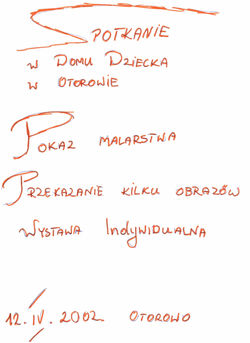 SPOTKANIE
W DOMU DZIECKA
W OTOROWIE
POKAZ MALARSTWA
PRZEKAZANIE KILKU OBRAZÓW
WYSTAWA INDYWIDUALNA
12.IV.2002 OTOROWO